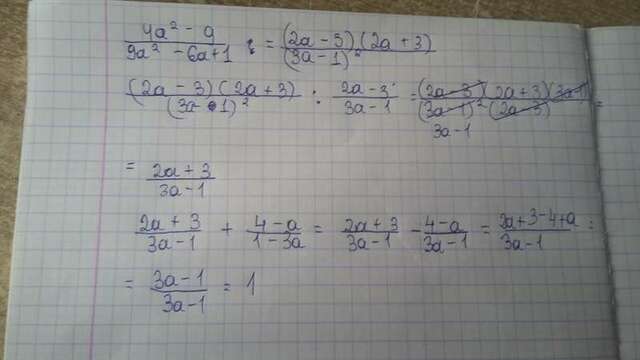 (4a² - 9)/(9a² - 6a + 1) = ((2a - 3)(2a + 3))/(3a - 1)²
((2a - 3)(2a + 3))/(3a - 1)² : (2a - 3)/(3a - 1) = ((2a - 3)(2a + 3)(3a - 1))/((3a - 1)²(2a - 3)) =
3a - 1
= (2a + 3)/(3a - 1)
(2a + 3)/(3a - 1) + (4 - a)/(1 - 3a) = (2a + 3)/(3a - 1) - (4 - a)/(3a - 1) = (2a + 3 - 4 + a)/(3a - 1) =
= (3a - 1)/(3a - 1) = 1